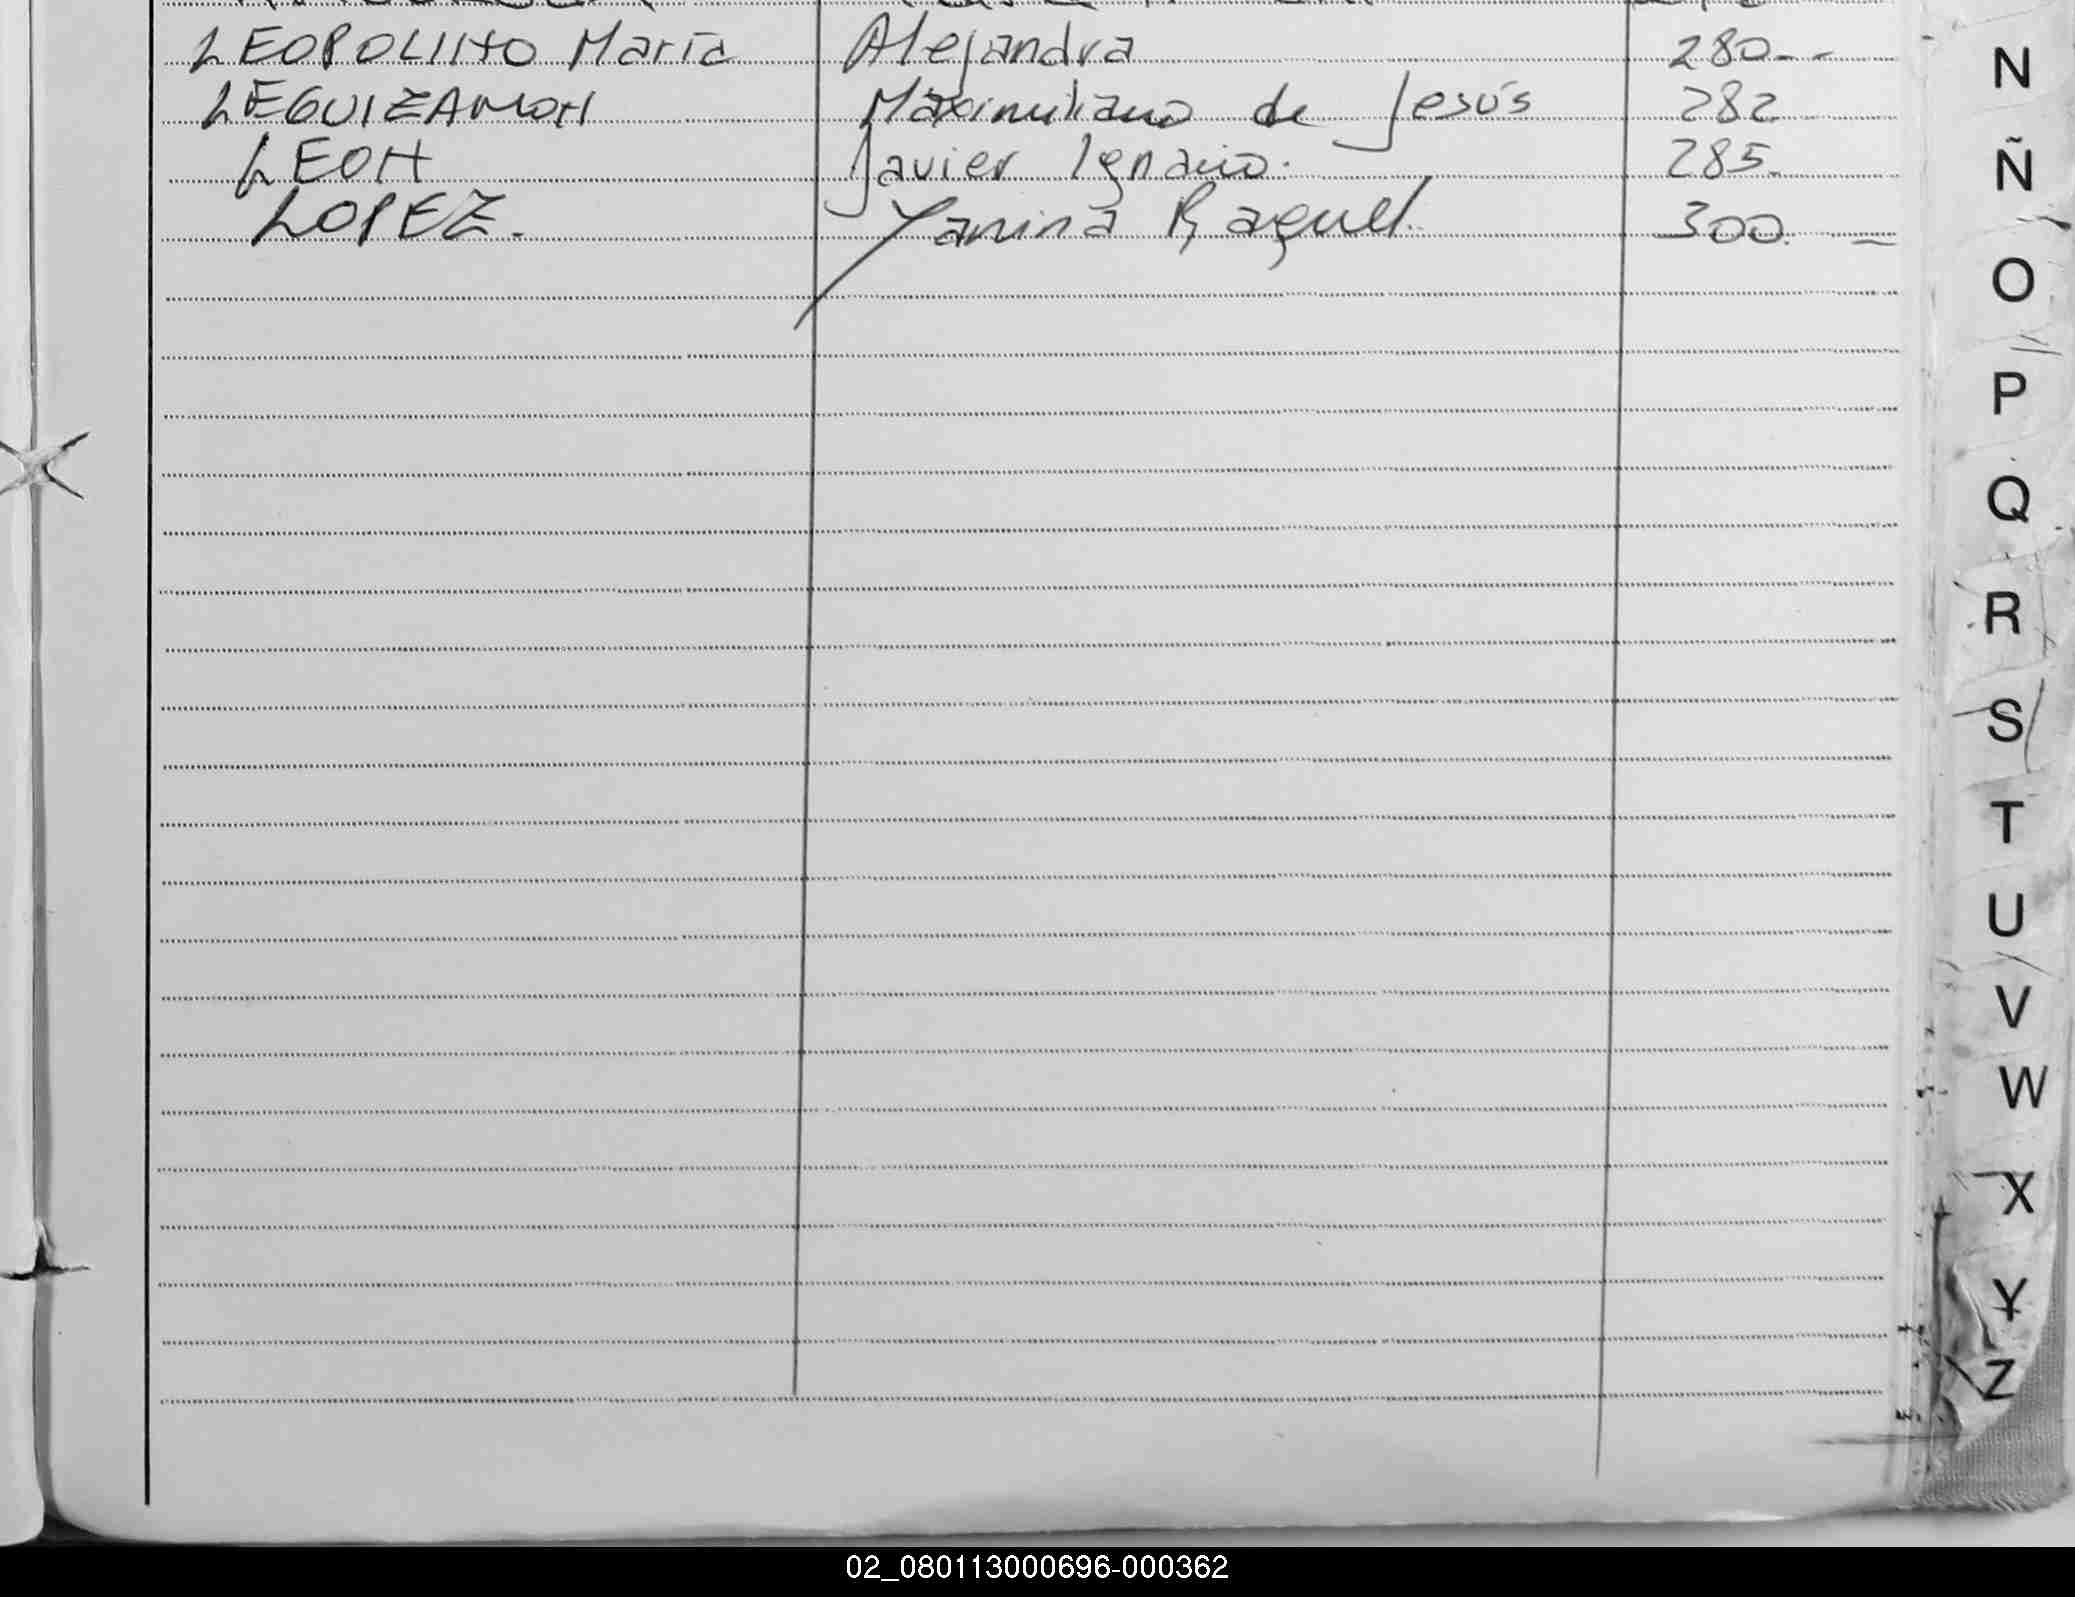 LEOPOLINO María Alejandra 280--
LEGUIZAMON Maximiliano de Jesús 282
LEON Javier Ignacio. 285.
LOPEZ. Yanina Raquel. 300. -
N
Ñ
O
P
Q
R
S
T
U
V
W
X
Y
Z
02_080113000696-000362